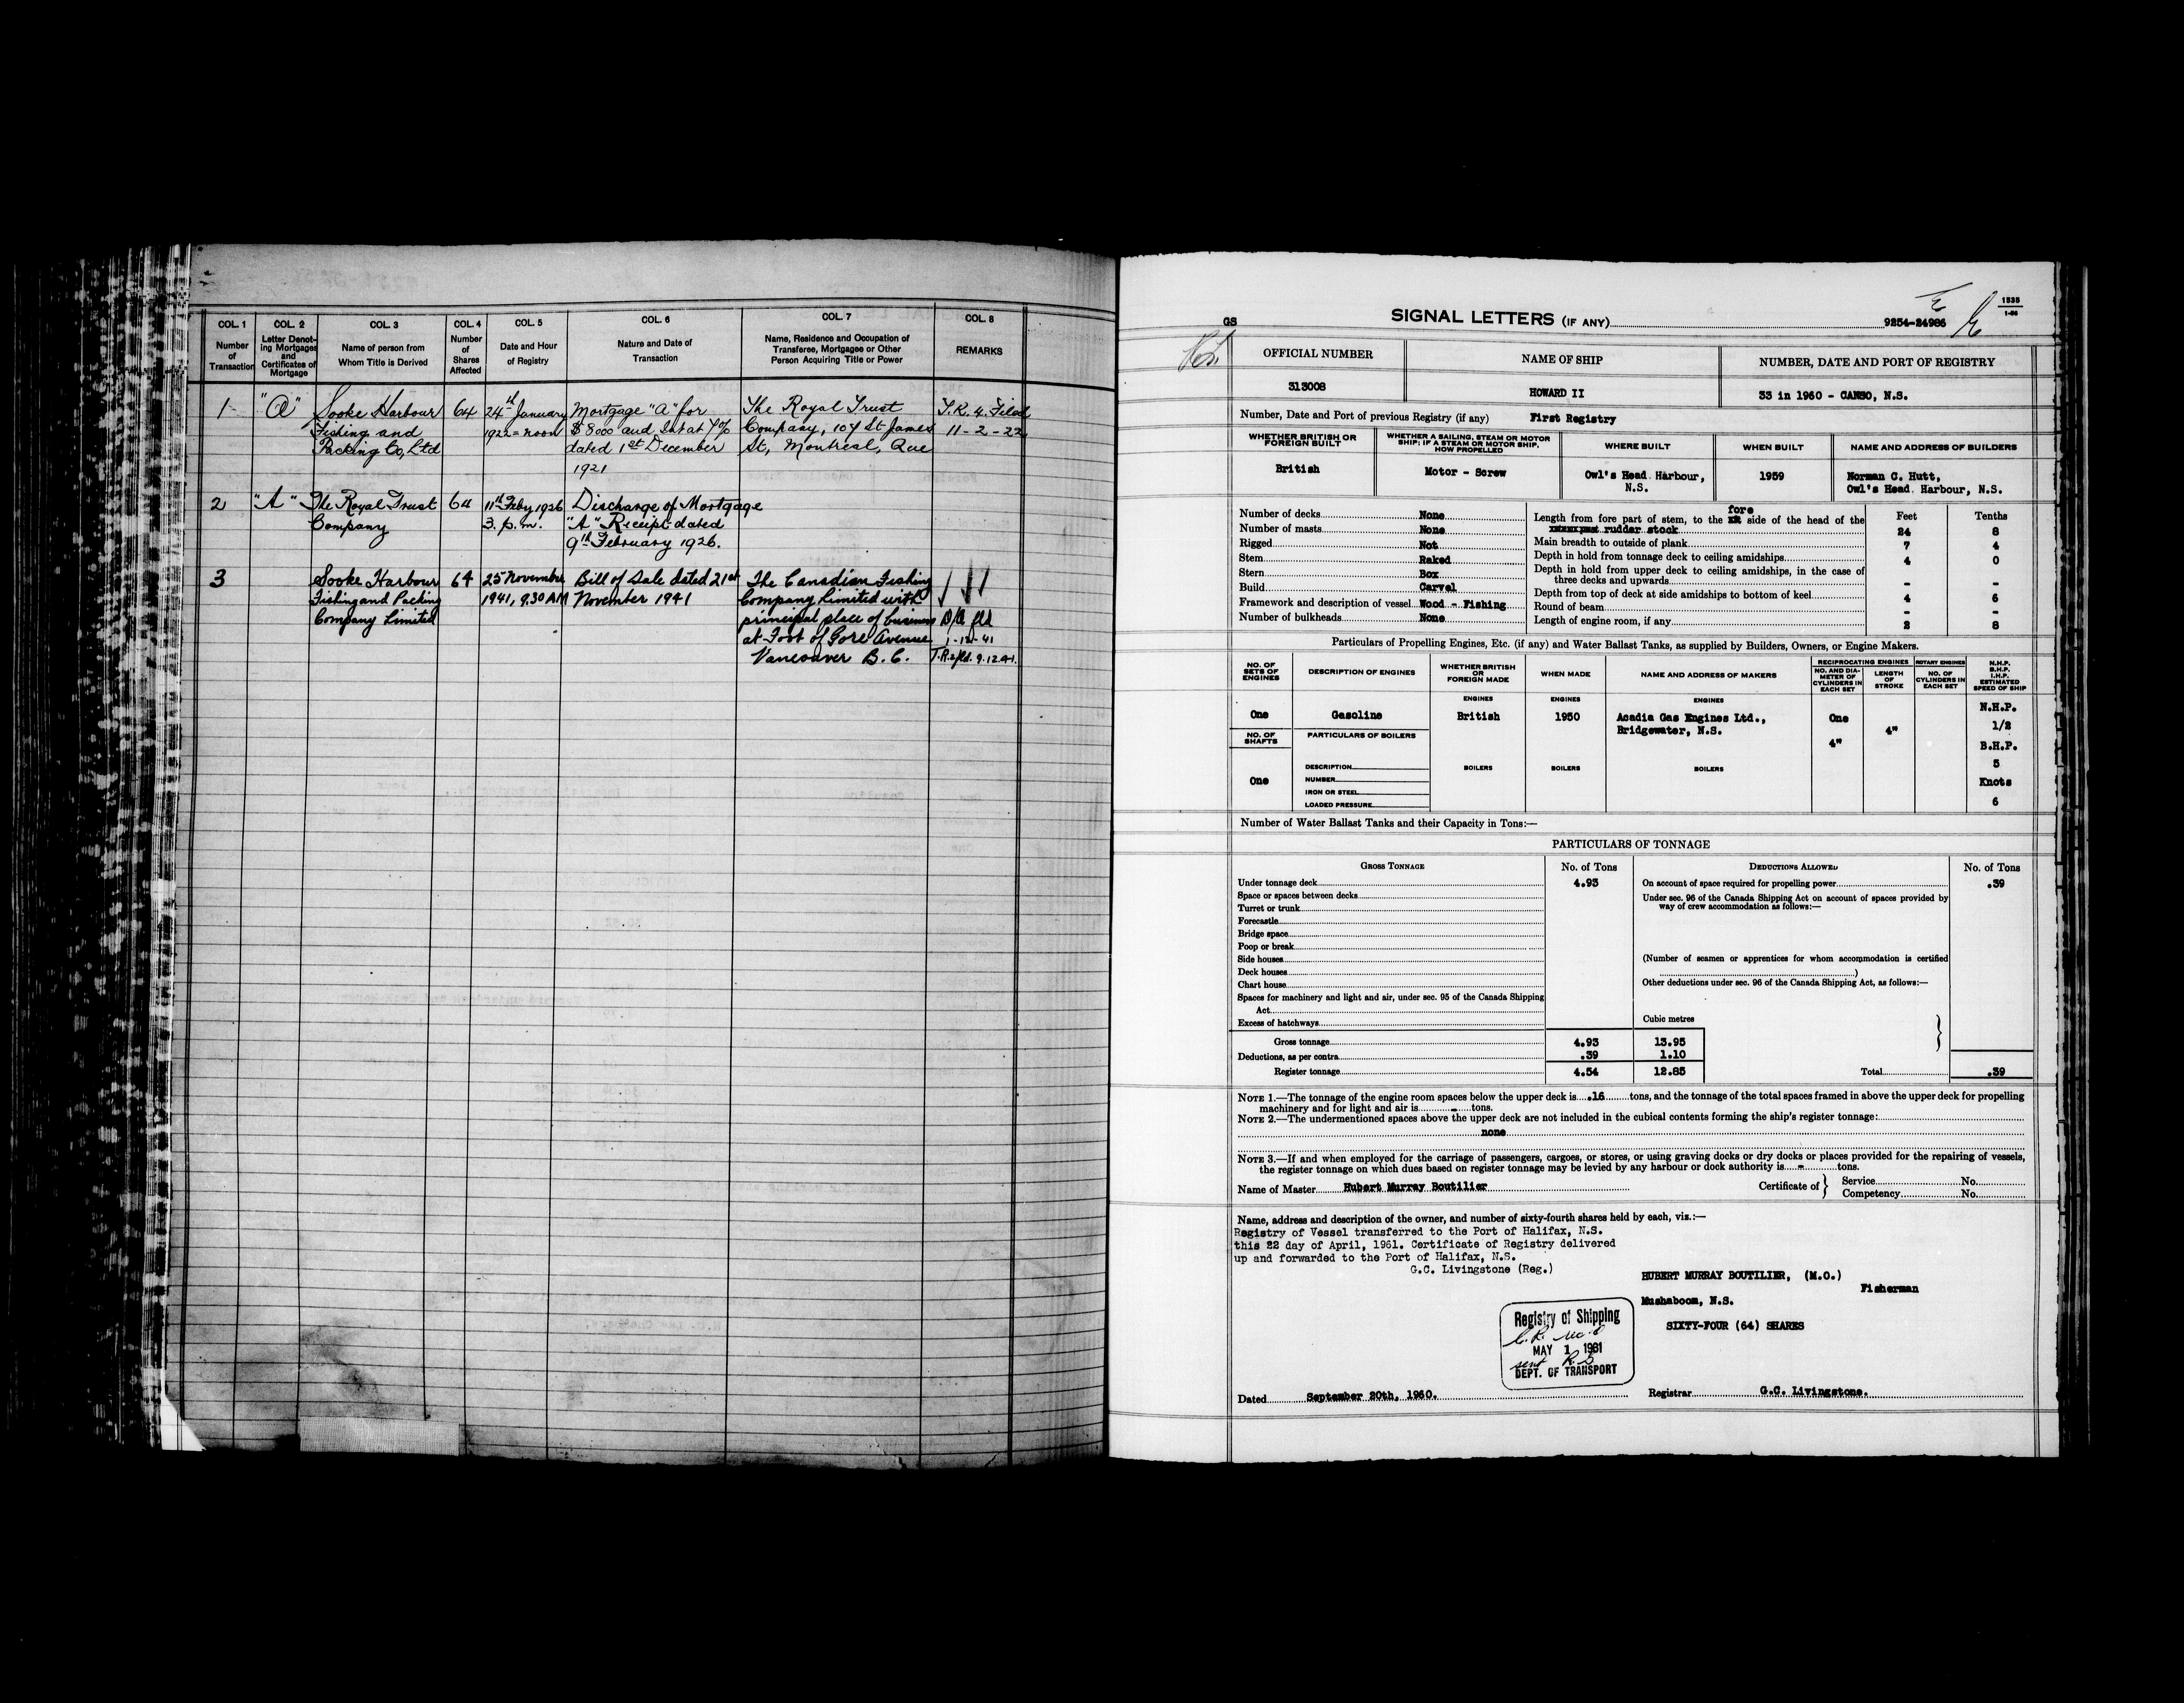 COL. 1 COL. 2 COL. 3 COL. 4 COL. 5 COL. 6 COL. 7 COL. 8
Number of Transaction
Letter Denoting Mortgages and Certificates of Mortgage
Name of person from Whom Title is Derived
Number of Shares Affected
Date and Hour of Registry
Nature and Date of Transaction
Name, Residence and Occupation of Transferee, Mortgagee or Other Person Acquiring Title or Power
REMARKS
1 "A" Sooke Harbour 64 24th January Mortgage "A" for The Royal Trust T.R. 4. Filed
Fishing and 1922 = noon $8000 and Int at 7% Company, 107 St James 11-2-22
Packing Co, Ltd dated 1st December St, Montreal, Que
1921
2 "A" The Royal Trust 64 11th Feby 1926 Discharge of Mortgage
Company 3. p.m. "A" Receipt dated
9th February 1926.
3 Sooke Harbour 64 25 November Bill of Sale dated 21st The Canadian Fishing
Fishing and Packing 1941, 9.30 AM November 1941 Company Limited with
Company Limited principal place of business
at Foot of Gore Avenue 1-12-41
Vancouver B.C. 9.12.41.
GS SIGNAL LETTERS (IF ANY) 9254-24986
1535
1-56
OFFICIAL NUMBER NAME OF SHIP NUMBER, DATE AND PORT OF REGISTRY
313008 HOWARD II 33 in 1960 - CANSO, N.S.
Number, Date and Port of previous Registry (if any) First Registry
WHETHER BRITISH OR FOREIGN BUILT
WHETHER A SAILING, STEAM OR MOTOR SHIP; IF A STEAM OR MOTOR SHIP, HOW PROPELLED
WHERE BUILT
WHEN BUILT
NAME AND ADDRESS OF BUILDERS
British Motor - Screw Owl's Head Harbour, 1959 Norman C. Hutt,
N.S. Owl's Head Harbour, N.S.
Number of decks None
Number of masts None
Rigged Not
Stem Raked
Stern Box
Build Carvel
Framework and description of vessel Wood - Fishing
Number of bulkheads None
Feet Tenths
fore
Length from fore part of stem, to the side of the head of the
ruddar stock 24 8
Main breadth to outside of plank 7 4
Depth in hold from tonnage deck to ceiling amidships 4 0
Depth in hold from upper deck to ceiling amidships, in the case of
three decks and upwards - -
Depth from top of deck at side amidships to bottom of keel 4 6
Round of beam - -
Length of engine room, if any 2 8
Particulars of Propelling Engines, Etc. (if any) and Water Ballast Tanks, as supplied by Builders, Owners, or Engine Makers.
NO. OF SETS OF ENGINES
DESCRIPTION OF ENGINES
WHETHER BRITISH OR FOREIGN MADE
WHEN MADE
NAME AND ADDRESS OF MAKERS
RECIPROCATING ENGINES ROTARY ENGINES
NO. AND DIAMETER OF CYLINDERS IN EACH SET
LENGTH OF STROKE
NO. OF CYLINDERS IN EACH SET
N.H.P. B.H.P. I.H.P. ESTIMATED SPEED OF SHIP
ENGINES ENGINES ENGINES
N.H.P.
One Gasoline British 1950 Acadia Gas Engines Ltd., One 1/2
Bridgewater, N.S. 4"
NO. OF SHAFTS PARTICULARS OF BOILERS 4" B.H.P.
5
DESCRIPTION BOILERS BOILERS BOILERS
One NUMBER Knots
IRON OR STEEL
LOADED PRESSURE 6
Number of Water Ballast Tanks and their Capacity in Tons:—
PARTICULARS OF TONNAGE
GROSS TONNAGE No. of Tons DEDUCTIONS ALLOWED No. of Tons
Under tonnage deck 4.93
Space or spaces between decks
Turret or trunk
Forecastle
Bridge space
Poop or break
Side houses
Deck houses
Chart house
Spaces for machinery and light and air, under sec. 95 of the Canada Shipping
Act
Excess of hatchways
On account of space required for propelling power .39
Under sec. 96 of the Canada Shipping Act on account of spaces provided by
way of crew accommodation as follows:—
(Number of seamen or apprentices for whom accommodation is certified
)
Other deductions under sec. 96 of the Canada Shipping Act, as follows:—
Cubic metres
Gross tonnage 4.93 13.95
Deductions, as per contra .39 1.10
Register tonnage 4.54 12.85 Total .39
NOTE 1.—The tonnage of the engine room spaces below the upper deck is .16 tons, and the tonnage of the total spaces framed in above the upper deck for propelling
machinery and for light and air is - tons.
NOTE 2.—The undermentioned spaces above the upper deck are not included in the cubical contents forming the ship's register tonnage:
none
NOTE 3.—If and when employed for the carriage of passengers, cargoes, or stores, or using graving docks or dry docks or places provided for the repairing of vessels,
the register tonnage on which dues based on register tonnage may be levied by any harbour or dock authority is - tons.
Name of Master Hubert Murray Boutilier Certificate of } Service No.
Competency No.
Name, address and description of the owner, and number of sixty-fourth shares held by each, viz.:—
Registry of Vessel transferred to the Port of Halifax, N.S.
this 22 day of April, 1961. Certificate of Registry delivered
up and forwarded to the Port of Halifax, N.S.
G.C. Livingstone (Reg.)
HUBERT MURRAY BOUTILIER, (M.O.)
Fisherman
Mushaboom, N.S.
SIXTY-FOUR (64) SHARES
Registry of Shipping
MAY 1 1961
DEPT. OF TRANSPORT
Dated September 20th, 1960. Registrar G.C. Livingstone.